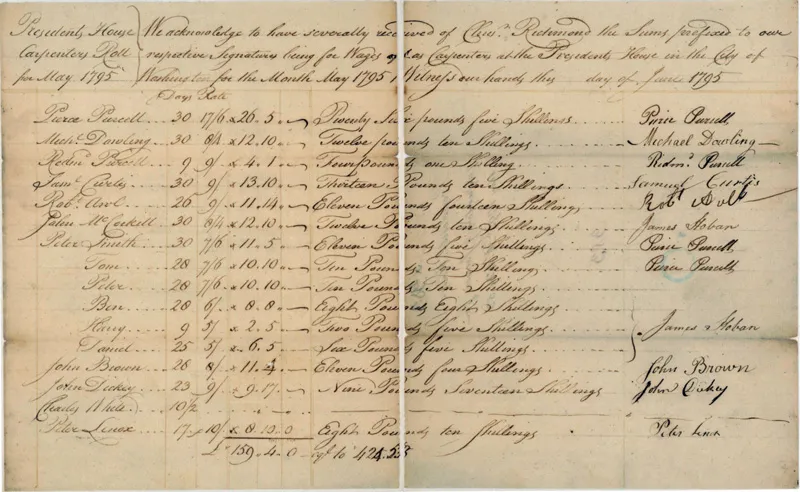 Presidents House We acknowledge to have severally received of Clem.t Richmond the Sums prefixed to our
Carpenters Roll respective Signatures being for Wages as Carpenters at the Presidents House in the City of
for May 1795 Washington for the Month May 1795 Witness our hands this day of June 1795
Days Rate
Pierce Purcell 30 17/6 26.5 Twenty Six pounds five Shillings Peirce Purcell
Mich.l Dowling 30 8/4 12.10 Twelve pounds ten Shillings Michael Dowling
Redm.d Purcell 9 9/ 4.1 Four pounds one Shilling Redm.d Purcell
Sam.l Curtis 30 9/ 13.10 Thirteen Pounds ten Shillings Samuel Curtis
Rob.t Aul 26 9/ 11.14 Eleven Pounds fourteen Shillings Rob.t Aull
Peter McCorkill 30 8/4 12.10 Twelve Pounds ten Shillings James Hoban
Peter Smith 30 7/6 11.5 Eleven Pounds five Shillings Peirce Purcell
Tom 28 7/6 10.10 Ten Pounds Ten Shilling Peirce Purcell
Peter 28 7/6 10.10 Ten Pounds Ten Shillings
Ben 28 6/ 8.8 Eight Pounds Eight Shillings
Harry 9 5/ 2.5 Two Pounds five Shillings James Hoban
Daniel 25 5/ 6.5 Six Pounds five Shillings
John Brown 28 8/ 11.4 Eleven Pounds four Shillings John Brown
John Dickey 23 9/ 9.17 Nine Pounds Seventeen Shillings John Dickey
Charles White 10/2
Peter Lenox 17 10/ 8.10.0 Eight Pounds ten Shillings Peter Lenox
£ 159.4.0